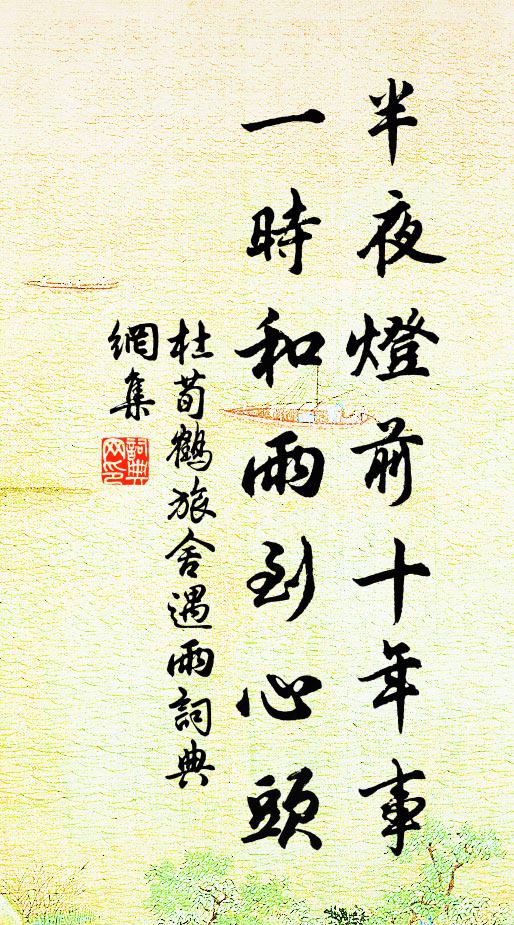 半夜燈前十年事
一時和雨到心頭
杜荀鶴旅舍遇雨詞典
網集
詞典
网印